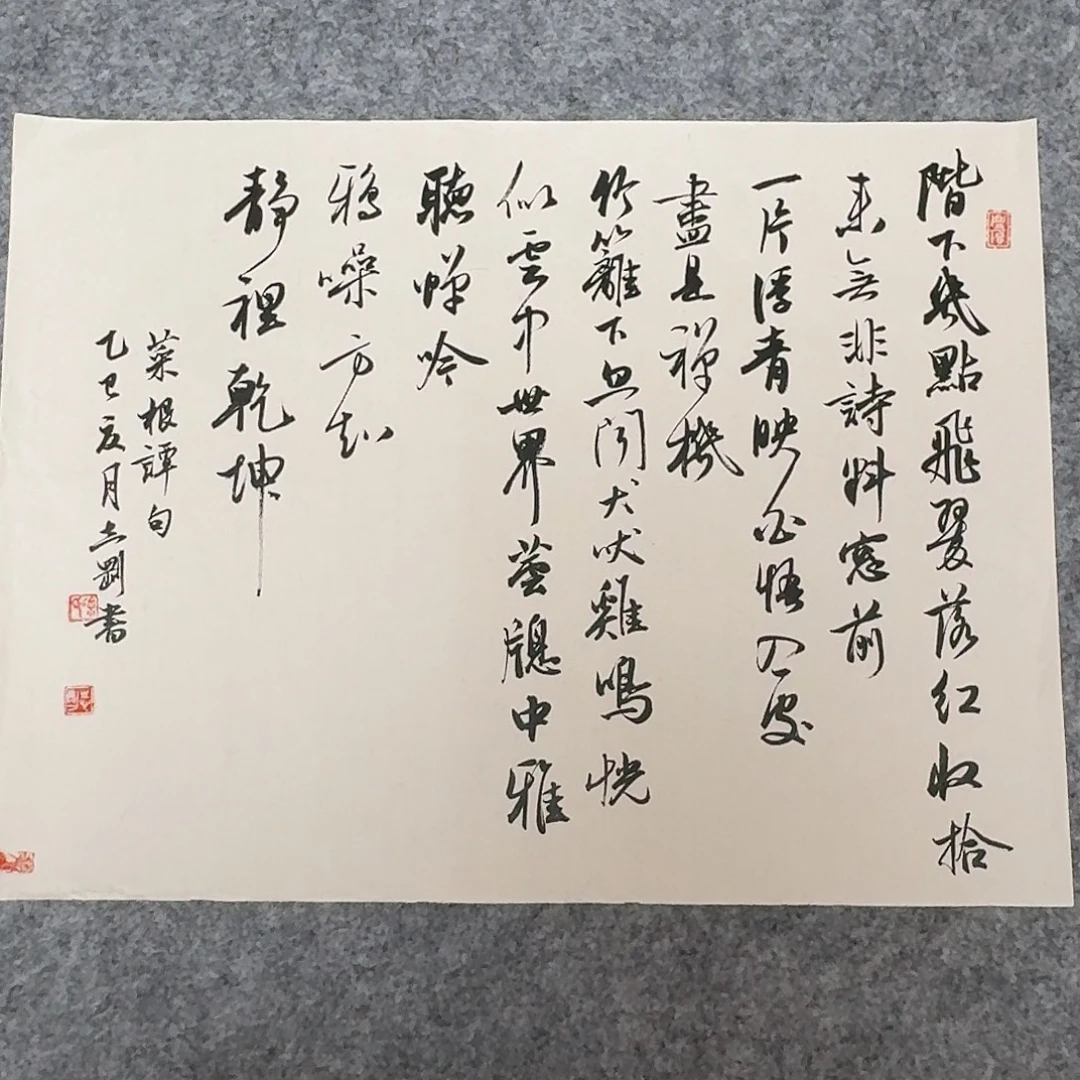 階下幾點飛翠落红收拾
來無非詩料窓前
一片浮青映白悟入處
盡是禪機
竹籬下忽聞犬吠雞鳴恍
似雲中世界芸牕中雅
聽蟬吟
鴉噪方知
靜裡乾坤
菜根譚句
乙巳夏月剛書